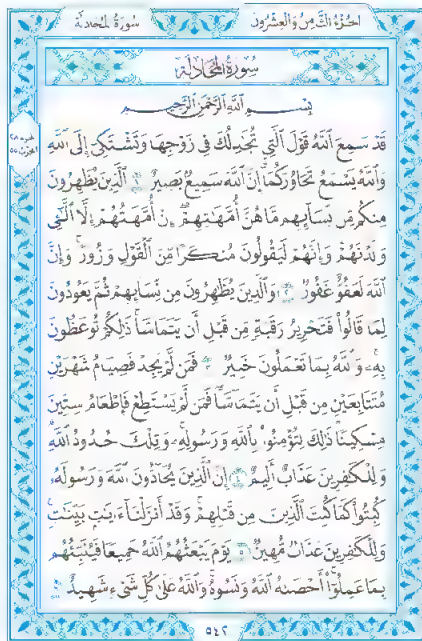 الجزء الثامن والعشرون
سورة المجادلة
سُورَةُ المُجَادلَة
بِسْمِ اللَّهِ الرَّحْمَٰنِ الرَّحِيمِ
قَدْ سَمِعَ اللَّهُ قَوْلَ الَّتِي تُجَٰدِلُكَ فِي زَوْجِهَا وَتَشْتَكِي إِلَى اللَّهِ
وَاللَّهُ يَسْمَعُ تَحَاوُرَكُمَا إِنَّ اللَّهَ سَمِيعٌ بَصِيرٌ ١ الَّذِينَ يُظَٰهِرُونَ
مِنكُم مِّن نِّسَآئِهِم مَّا هُنَّ أُمَّهَٰتِهِمْ إِنْ أُمَّهَٰتُهُمْ إِلَّا الَّٰٓـِٔي
وَلَدْنَهُمْ وَإِنَّهُمْ لَيَقُولُونَ مُنكَرًا مِّنَ الْقَوْلِ وَزُورًا وَإِنَّ
اللَّهَ لَعَفُوٌّ غَفُورٌ ٢ وَالَّذِينَ يُظَٰهِرُونَ مِن نِّسَآئِهِمْ ثُمَّ يَعُودُونَ
لِمَا قَالُوا فَتَحْرِيرُ رَقَبَةٍ مِّن قَبْلِ أَن يَتَمَآسَّا ذَٰلِكُمْ تُوعَظُونَ
بِهِۦ وَاللَّهُ بِمَا تَعْمَلُونَ خَبِيرٌ ٣ فَمَن لَّمْ يَجِدْ فَصِيَامُ شَهْرَيْنِ
مُتَتَابِعَيْنِ مِن قَبْلِ أَن يَتَمَآسَّا فَمَن لَّمْ يَسْتَطِعْ فَإِطْعَامُ سِتِّينَ
مِسْكِينًا ذَٰلِكَ لِتُؤْمِنُوا بِاللَّهِ وَرَسُولِهِۦ وَتِلْكَ حُدُودُ اللَّهِ
وَلِلْكَٰفِرِينَ عَذَابٌ أَلِيمٌ ٤ إِنَّ الَّذِينَ يُحَآدُّونَ اللَّهَ وَرَسُولَهُۥ
كُبِتُوا كَمَا كُبِتَ الَّذِينَ مِن قَبْلِهِمْ وَقَدْ أَنزَلْنَآ ءَايَٰتٍۭ بَيِّنَٰتٍ
وَلِلْكَٰفِرِينَ عَذَابٌ مُّهِينٌ ٥ يَوْمَ يَبْعَثُهُمُ اللَّهُ جَمِيعًا فَيُنَبِّئُهُم
بِمَا عَمِلُوٓا أَحْصَىٰهُ اللَّهُ وَنَسُوهُ وَاللَّهُ عَلَىٰ كُلِّ شَيْءٍ شَهِيدٌ ٦
٥٤٢